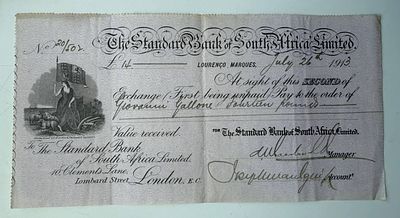 No 20/502
The Standard Bank of South Africa Limited.
£ 14 LOURENÇO MARQUES, July 26th 1913
At sight of this SECOND of
Exchange (First being unpaid) Pay to the order of
Giovanni Gallone Fourteen pounds
Value received
FOR The Standard Bank of South Africa Limited.
To The Standard Bank
of South Africa Limited.
Manager
10, Clements Lane,
Lombard Street, London, E.C.
Account